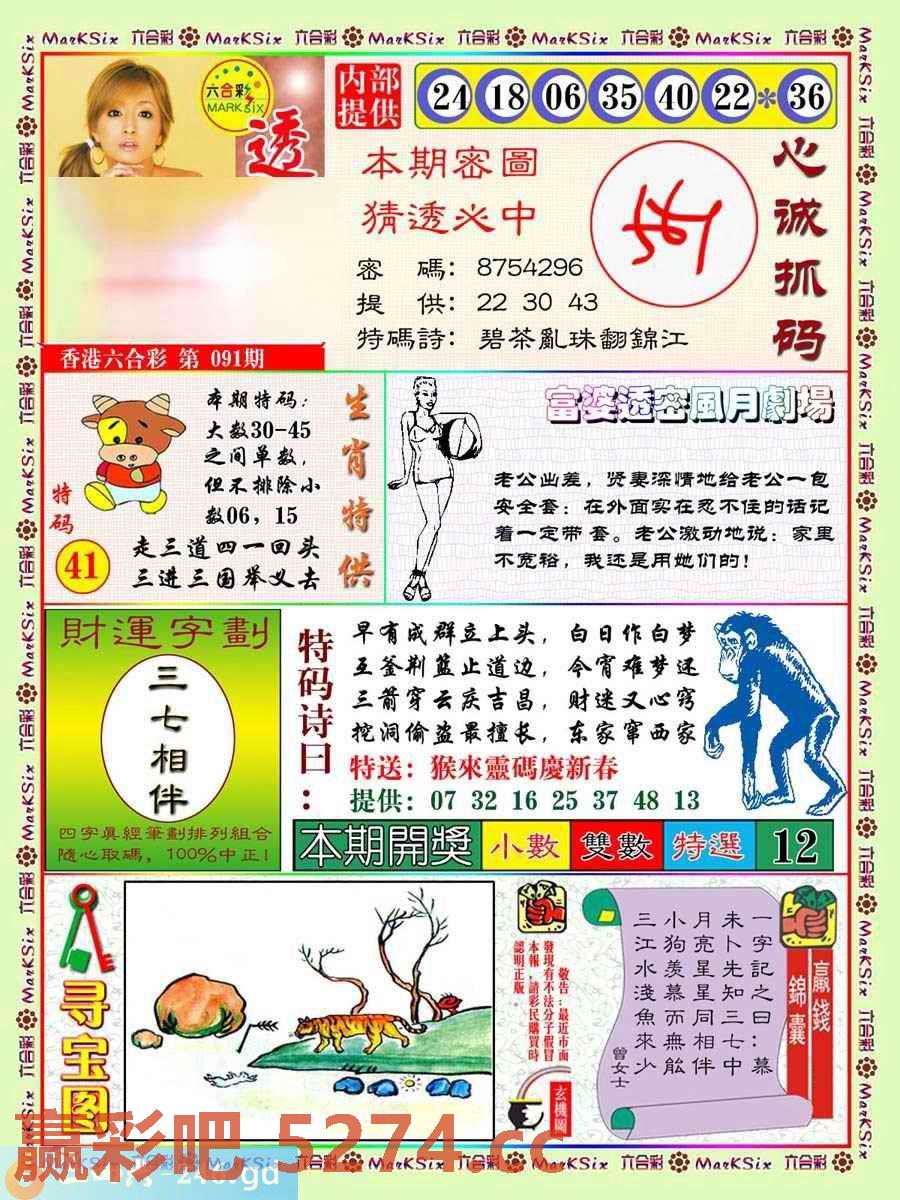 MarKSix 六合彩 MarKSix 六合彩 MarKSix 六合彩 MarKSix 六合彩 MarKSix 六合彩
六合彩
MARK SIX
透
内部
提供
24 18 06 35 40 22 * 36
本期密圖
猜透必中
密 碼：8754296
提 供：22 30 43
特碼詩：碧茶亂珠翻錦江
心诚抓码
香港六合彩 第 091期
特码
41
本期特码：
大数30-45
之间单数，
但不排除小
数06，15
走三道四一回头
三进三国举义去
生肖特供
富婆透密風月劇場
老公出差，贤妻深情地给老公一包
安全套：在外面实在忍不住的话记
着一定带 套。老公激动地说：家里
不宽裕，我还是用她们的！
財運字劃
三七相伴
四字眞經筆劃排列組合
隨心取碼，100%中正！
特码诗曰：
早有成群立上头，白日作白梦
五釜荆篮止道边，今宵难梦还
三箭穿云庆吉昌，财迷又心窍
挖洞偷盗最擅长，东家窜西家
特送：猴來靈碼慶新春
提供：07 32 16 25 37 48 13
本期開獎 小數 雙數 特選 12
寻宝图
敬告：最近市面
發現有不法分子假冒
本報，請彩民購買時
認明正版。
玄機圖
一字記之曰：慕
未卜先知三七中
月亮星星同相伴
小狗羨慕而無能
三江水淺魚來少
曾女士
贏錢
錦囊
赢彩吧 5274.cc
MarKSix 六合彩 MarKSix 六合彩 MarKSix 六合彩